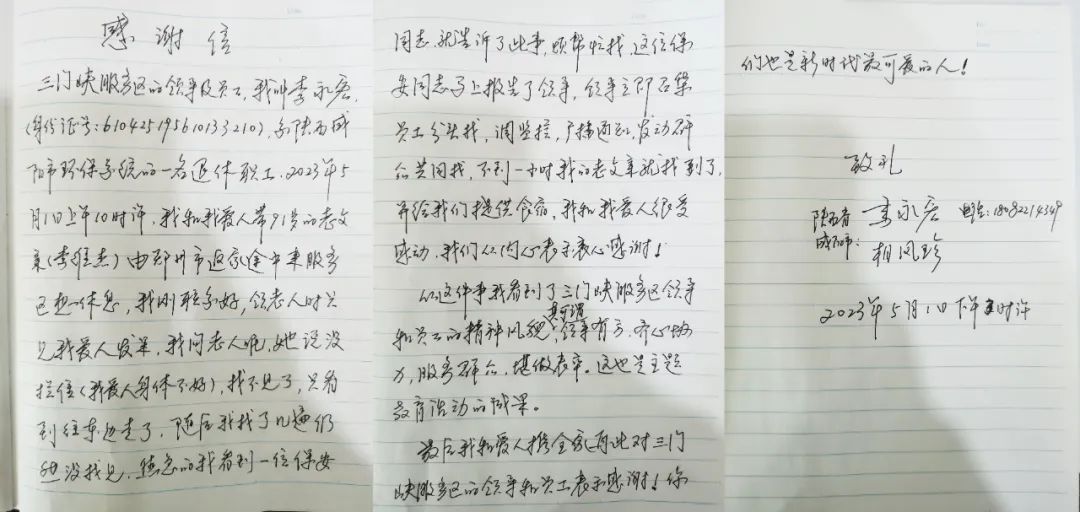 感谢信
三门峡服务区的领导及员工，我叫李永宏，
(身份证号：610425195610133210)，系陕西咸
阳市环保系统的一名退休职工，2023年5
月1日上午10时许，我和我爱人带91岁的老父
亲(李维杰)由郑州市返家途中来服务
区想一休息，我刚联系好，领老人时只
见我爱人发呆，我问老人呢，她说没
拦住(我爱人身体不好)，找不见了，只看
到往东边走了，随后我找了几遍仍
然没找见，焦急的我看到一位保安
同志，就告诉了此事，烦帮忙找，这位保
安同志马上报告了领导，领导立即召集
员工分头找，调监控，广播通知，发动群
众共同找，不到一小时我的老父亲就找到了，
并给我们提供食宿，我和我爱人很受
感动，我们从内心表示衷心感谢！
从这件事我看到了三门峡服务区领导
和员工的精神风貌，真可谓领导有方，齐心协
力，服务群众，堪做表率。这也是主题
教育活动的成果。
最后我和爱人携全家再此对三门
峡服务区的领导和员工表示感谢！你
们也是新时代最可爱的人！
致礼
陕西省 李永宏 电话：18082214349
咸阳市： 相风珍
2023年5月1日下午 时许